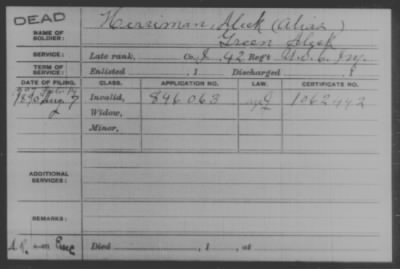 DEAD
NAME OF SOLDIER: Herriman, Dick (Alias)
Green Dick
SERVICE: Late rank, Co. I, 42 Reg't U.S.C. Inf.
TERM OF SERVICE: Enlisted , 1 Discharged , 1
DATE OF FILING. CLASS. APPLICATION NO. LAW. CERTIFICATE NO.
1890 Aug 7 Invalid, 896.063 1062.442
Widow,
Minor,
ADDITIONAL SERVICES:
REMARKS:
Died , 1 , at